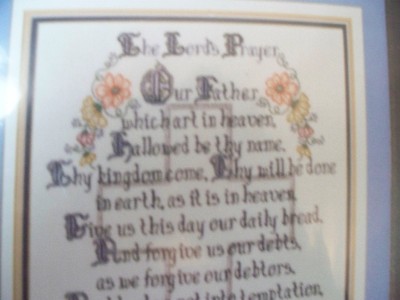 The Lord's Prayer
Our Father
which art in heaven,
Hallowed be thy name.
Thy kingdom come. Thy will be done
in earth, as it is in heaven.
Give us this day our daily bread.
And forgive us our debts,
as we forgive our debtors.
not into temptation,